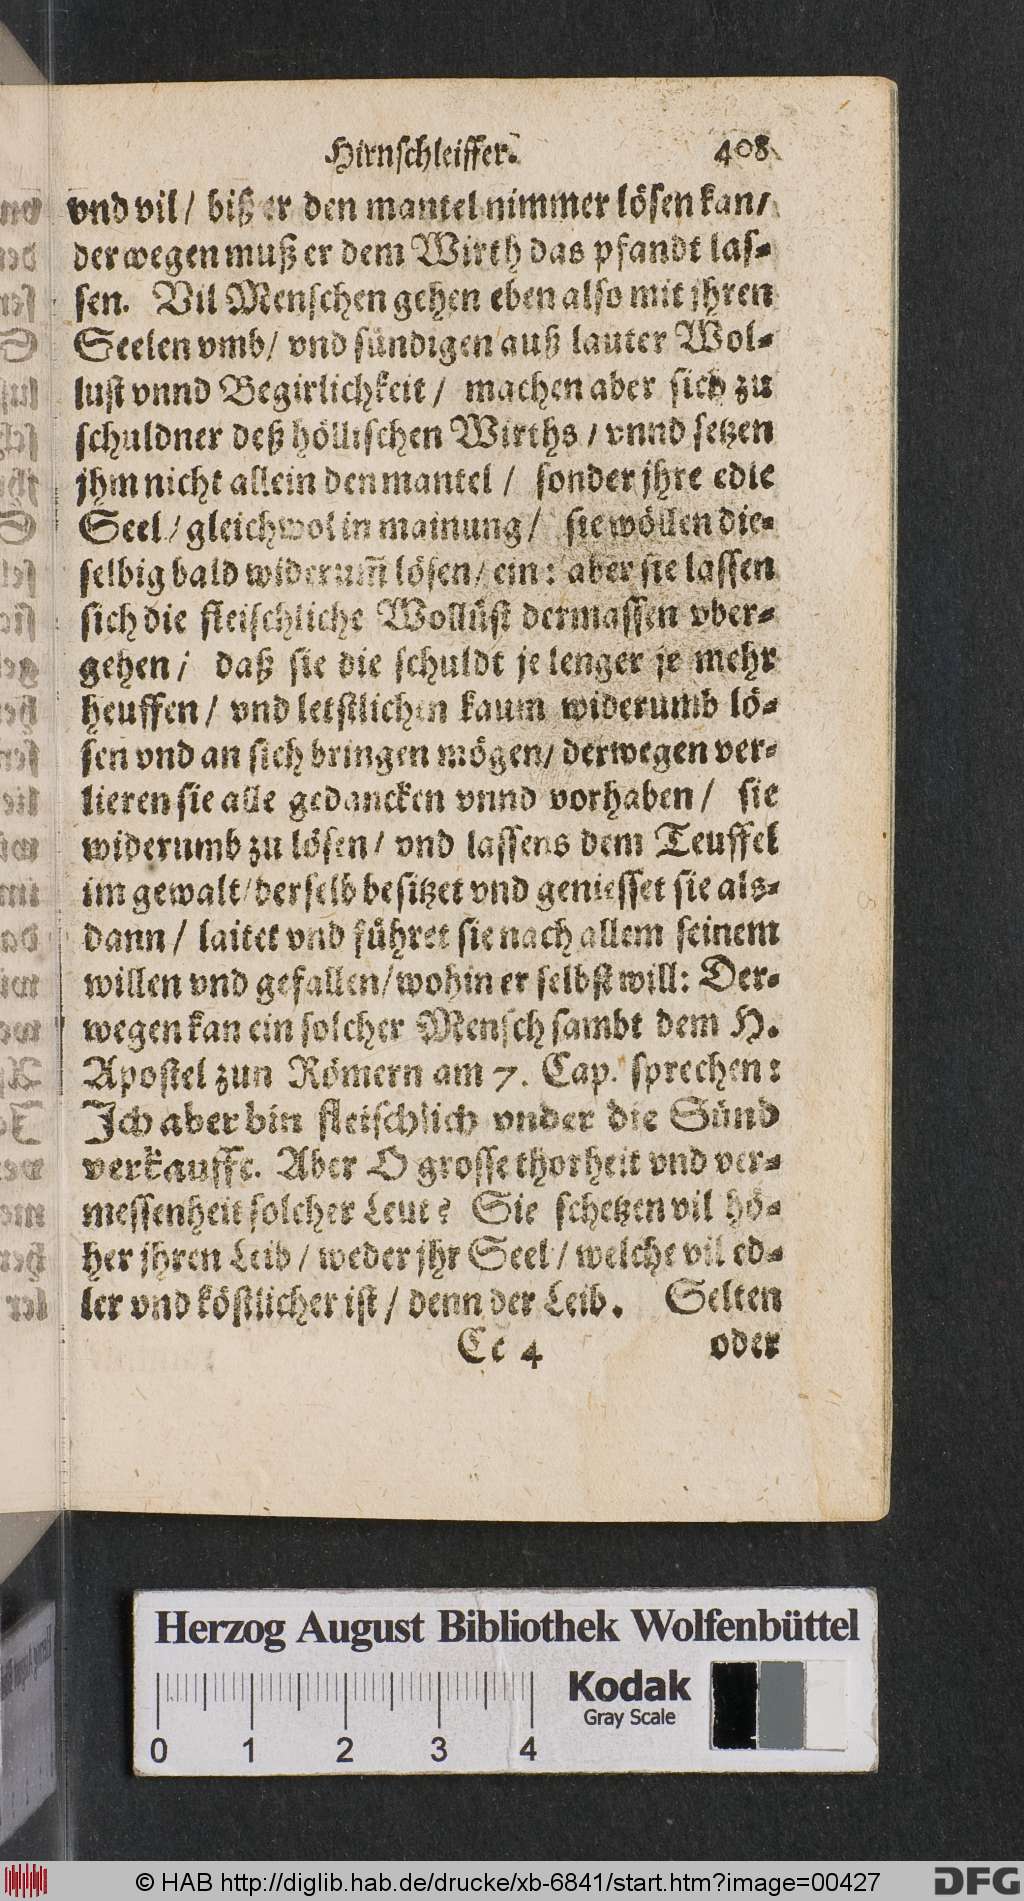 Hirnschleiffer. 408
vnd vil / biß er den mantel nimmer lösen kan /
derwegen muß er dem Wirth das pfandt las-
sen. Vil Menschen gehen eben also mit jhren
Seelen vmb / vnd sündigen auß lauter Wol-
lust vnnd Begirlichkeit / machen aber sich zu
schuldner deß höllischen Wirths / vnnd setzen
jhm nicht allein den mantel / sonder jhre edle
Seel / gleichwol in mainung / sie wöllen die-
selbig bald widerum̃ lösen / ein: aber sie lassen
sich die fleischliche Wollüst dermassen vber-
gehen / daß sie die schuldt je lenger je mehr
heuffen / vnd letstlichen kaum widerumb lö-
sen vnd an sich bringen mögen / derwegen ver-
lieren sie alle gedancken vnnd vorhaben / sie
widerumb zu lösen / vnd lassens dem Teuffel
im gewalt / derselb besitzet vnd geniesset sie als-
dann / laitet vnd führet sie nach allem seinem
willen vnd gefallen / wohin er selbst will: Der-
wegen kan ein solcher Mensch sambt dem H.
Apostel zun Römern am 7. Cap. sprechen:
Ich aber bin fleischlich vnder die Sünd
verkaufft. Aber O grosse thorheit vnd ver-
messenheit solcher Leut? Sie schetzen vil hö-
her jhren Leib / weder jhr Seel / welche vil ed-
ler vnd köstlicher ist / denn der Leib. Selten
Ee 4 oder
Herzog August Bibliothek Wolfenbüttel
Kodak
Gray Scale
0 1 2 3 4
© HAB http://diglib.hab.de/drucke/xb-6841/start.htm?image=00427
DFG